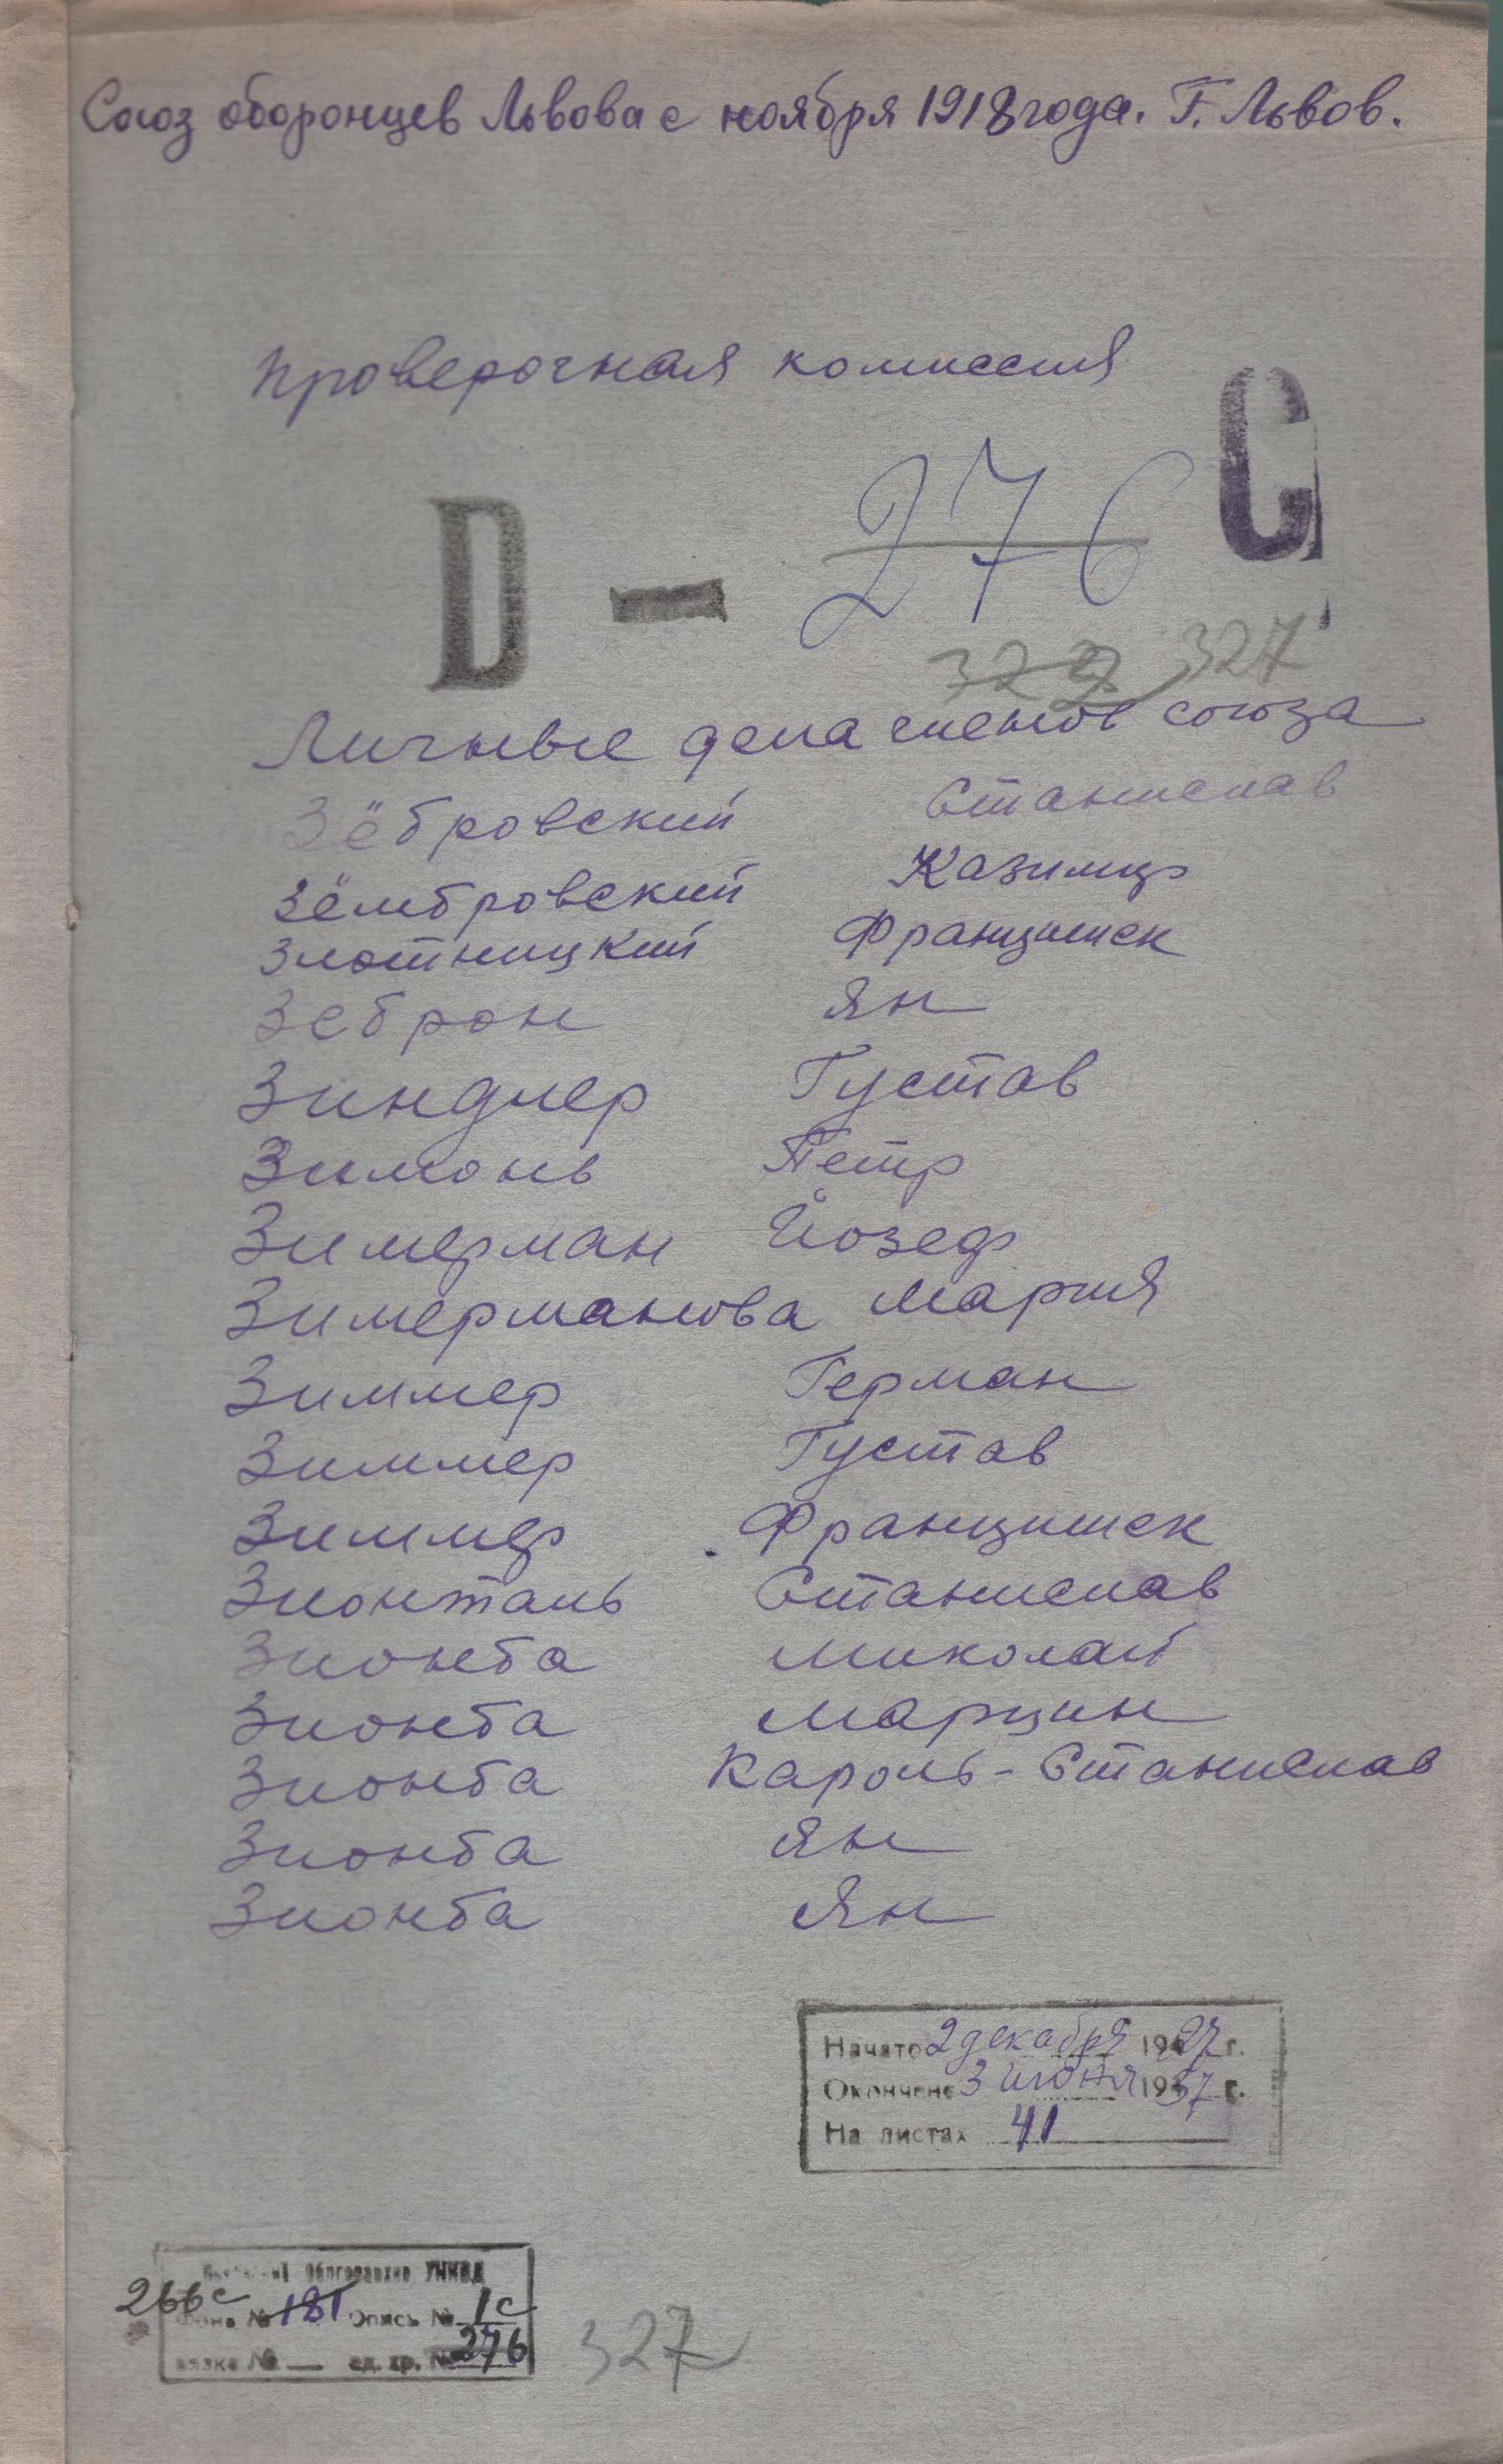 Союз оборонцев Львова с ноября 1918 года. Г. Львов.
Проверочная комиссия
С
D – 276
322 327
Личные дела членов союза
Зёбровский Станислав
Зёмбровский Казимир
Злотницкий Францишек
Зеброн Ян
Зиндлер Густав
Зимонь Петр
Зимерман Йозеф
Зимерманова Мария
Зиммер Герман
Зиммер Густав
Зиммер Францишек
Зионталь Станислав
Зиомба Миколай
Зиомба Марцин
Зиомба Кароль-Станислав
Зиомба Ян
Зиомба Ян
Начато 2 декабря 1927 г.
Окончено 3 июня 1937 г.
На листах 41
Облгосархив УНКВД
266с Фонд № 181 Опись № 1с
вязка № — ед. хр. № 276
327